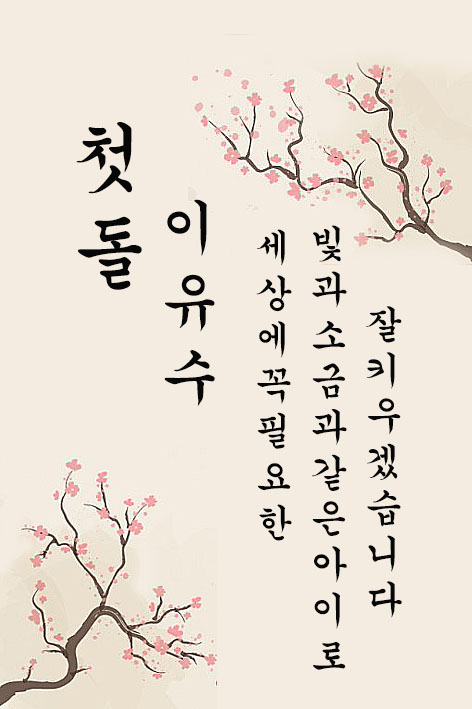 첫돌
이유수
세상에꼭필요한
빛과소금과같은아이로
잘키우겠습니다